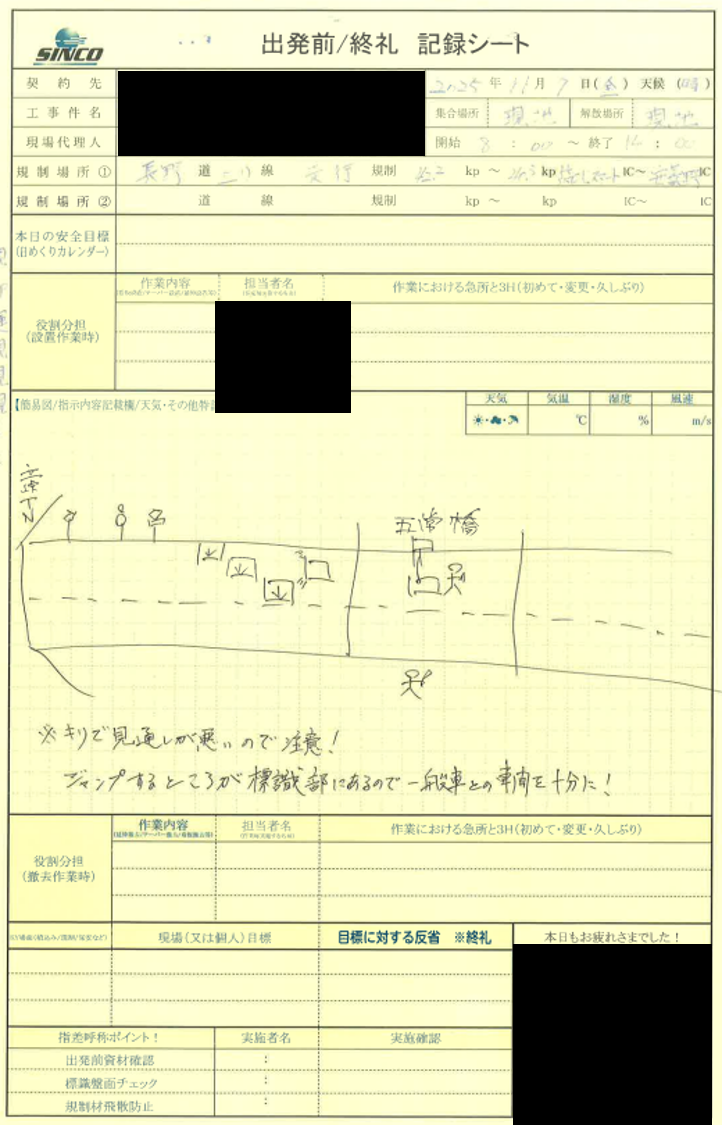 SINCO
出発前/終礼 記録シート
契約先
2025年11月7日(金) 天候(晴)
工事件名
集合場所 現地 解散場所 現地
現場代理人
開始 8:00～終了 :00
規制場所① 長野道 上り線 規制 kp～ kp IC～安曇野IC
規制場所② 道 線 規制 kp～ kp IC～ IC
本日の安全目標
(日めくりカレンダー)
作業内容 担当者名 作業における急所と3H(初めて・変更・久しぶり)
役割分担
(設置作業時)
【簡易図/指示内容記載欄/天気・その他特
天気 気温 湿度 風速
℃ % m/s
五常橋
※キリで見通しが悪いので注意!
ジャンプするところが標識部にあるので一般車との車間を十分に!
作業内容 担当者名 作業における急所と3H(初めて・変更・久しぶり)
役割分担
(撤去作業時)
現場(又は個人)目標 目標に対する反省 ※終礼 本日もお疲れさまでした!
指差呼称ポイント! 実施者名 実施確認
出発前資材確認 :
標識盤面チェック :
規制材飛散防止 :